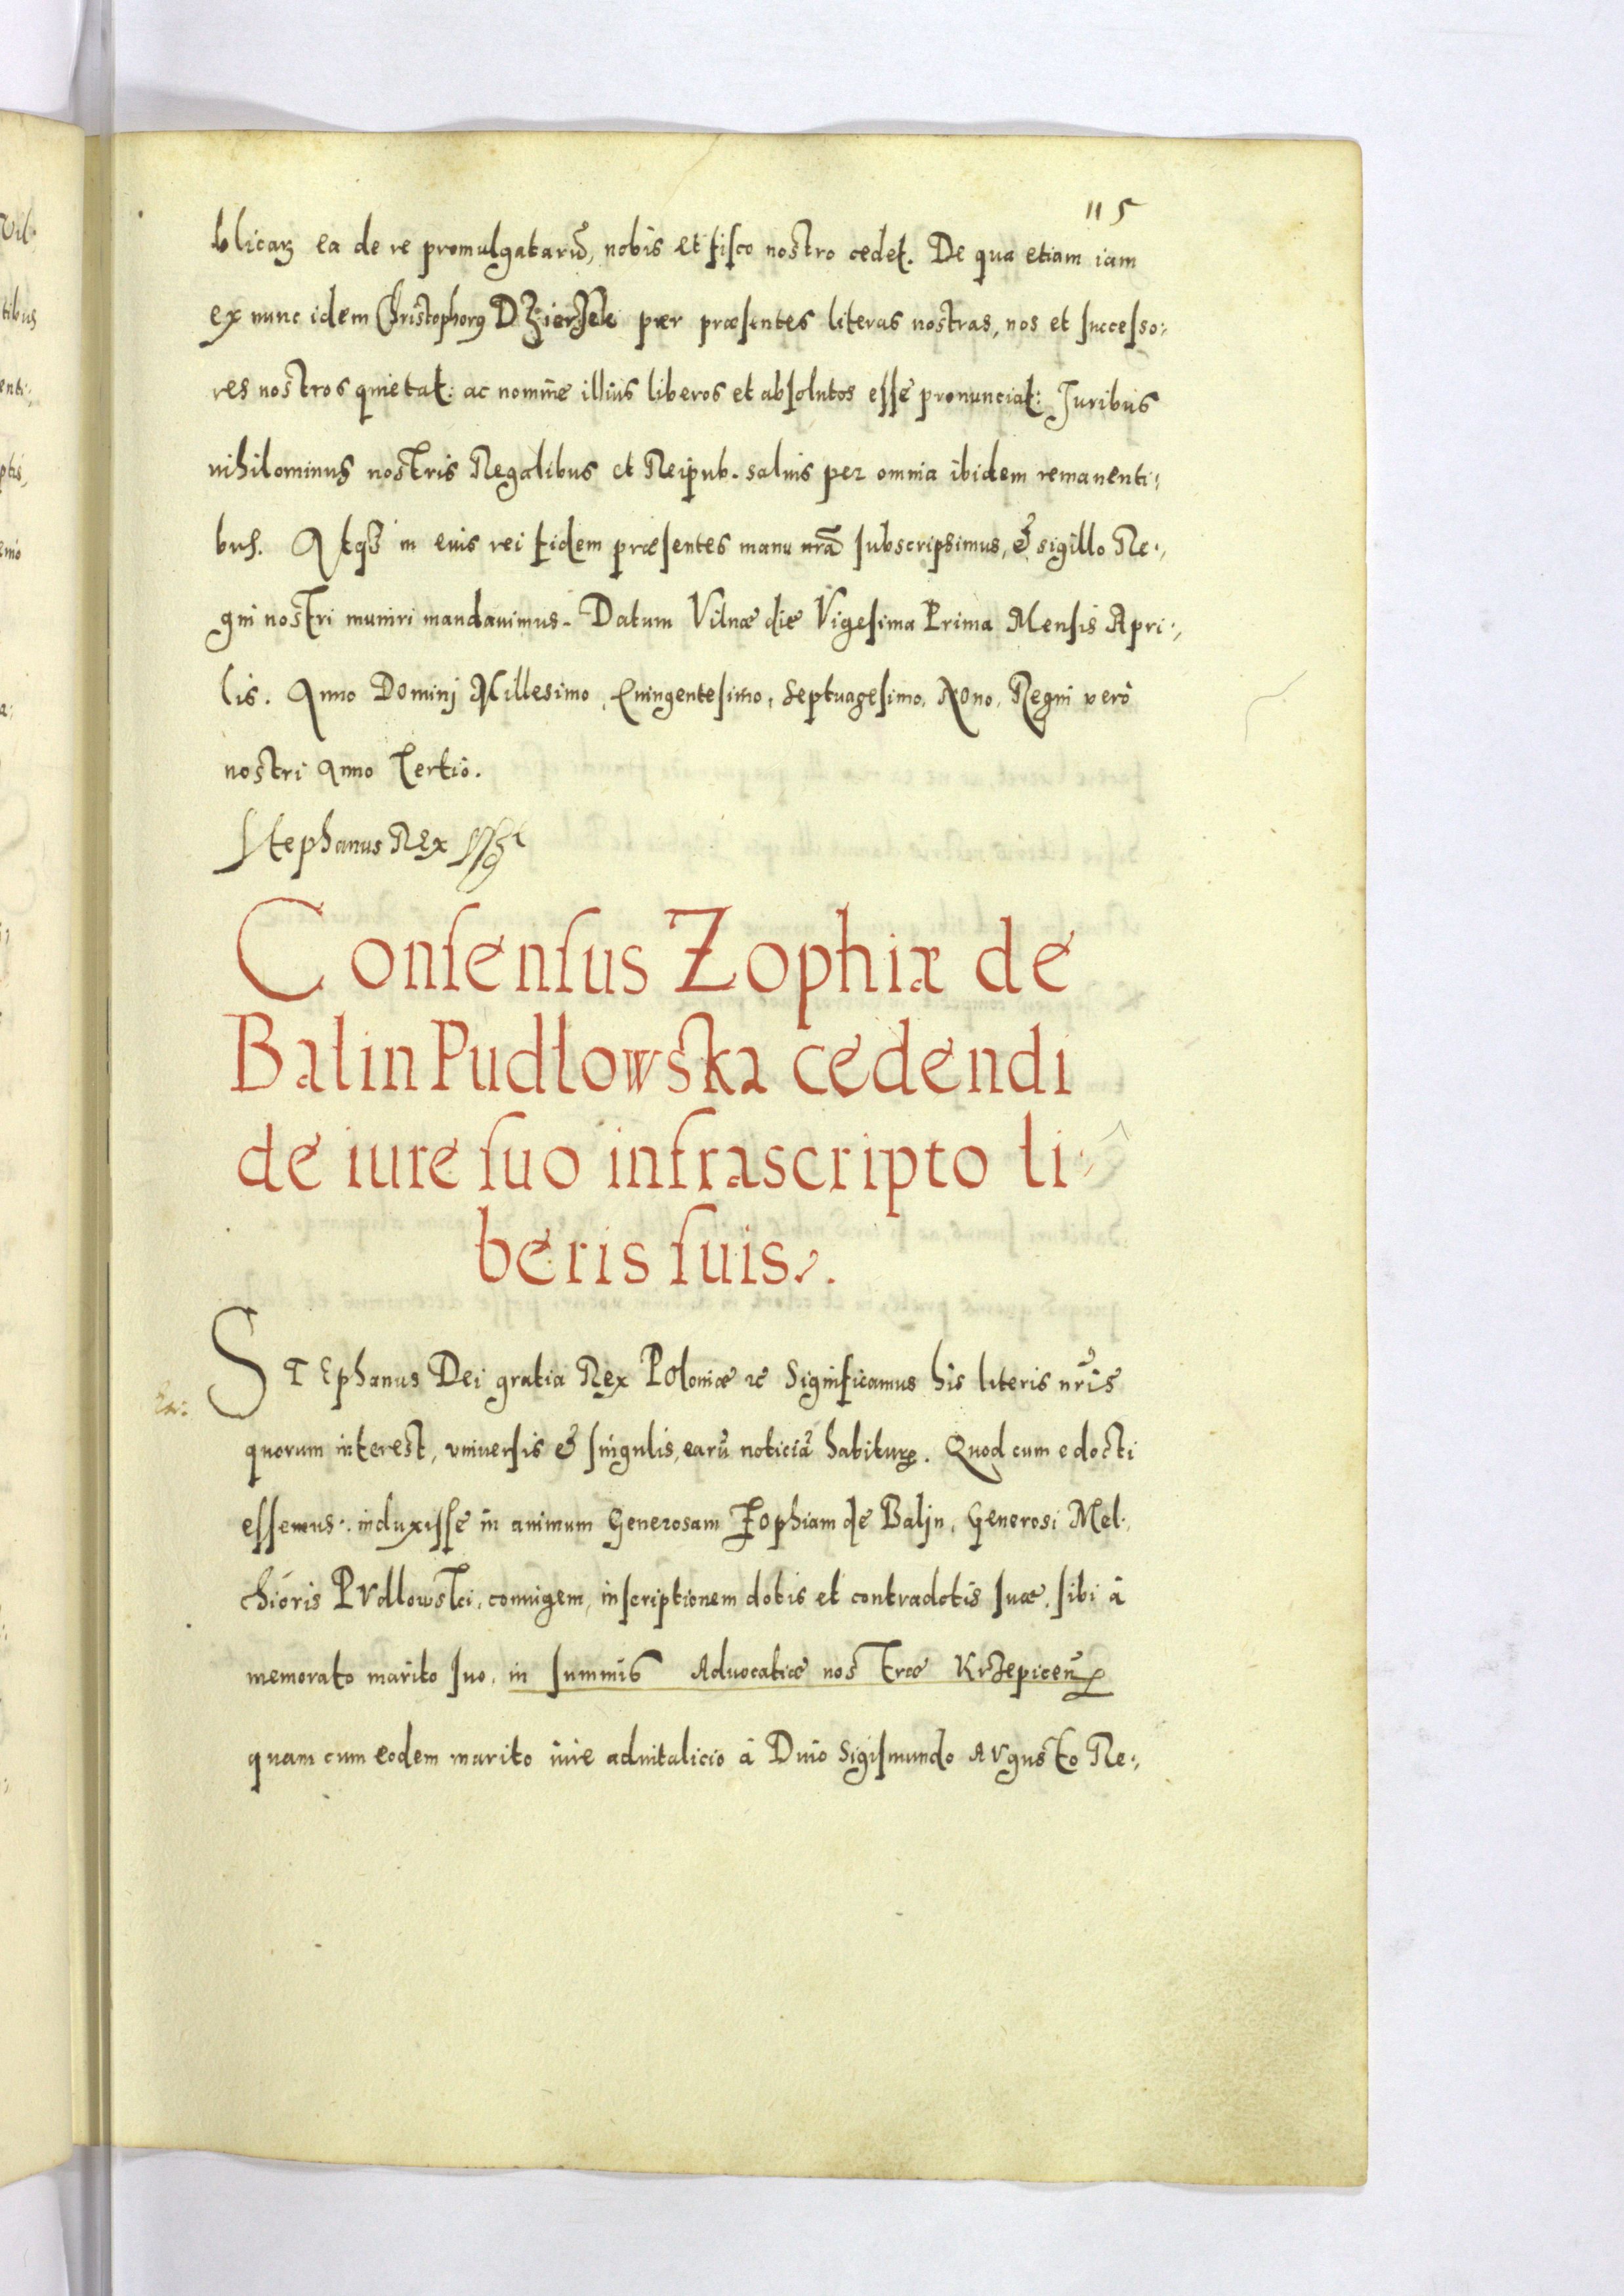 115
blicarꝫ ea de re promulgatarū, nobis et fisco nostro cedet. De qua etiam iam
ex nunc idem Christophorꝰ DZierSek per præsentes literas nostras, nos et successo:
res nostros quietat: ac nomine illius liberos et absolutos esse pronunciat: Juribus
nihilominus nostris Regalibus et Reipub. salvis per omnia ibidem remanenti:
bus. Atqꝫ in eius rei fidem præsentes manu nrā subscripsimus, & sigillo Re:
gni nostri muniri mandauimus. Datum Vilnæ die Vigesima Prima Mensis Apri:
lis. Anno Dominj Millesimo, Quingentesimo, Septuagesimo, Nono, Regni verò
nostri Anno Tertio.
Stephanus Rex sszt
Consensus Zophiæ de
Balin Pudłowska cedendi
de iure suo infrascripto li:
beris suis.
STEphanus Dei gratia Rex Poloniæ ꝛc Significamus his literis nr̄is
quorum interest, vniuersis & singulis, earū noticiā habiturꝭ. Quod cum edocti
essemus: induxisse in animum Generosam Zophiam de Baljn, Generosi Mel:
chioris PVdlowsKi, coniugem, inscriptionem dotis et contradotis suæ, sibi à
memorato marito suo, in summis Advocatiæ nostræ Krzepicen̄
quam cum eodem marito iure aduitalicio à Dn̄o Sigismundo AVgusto Re: